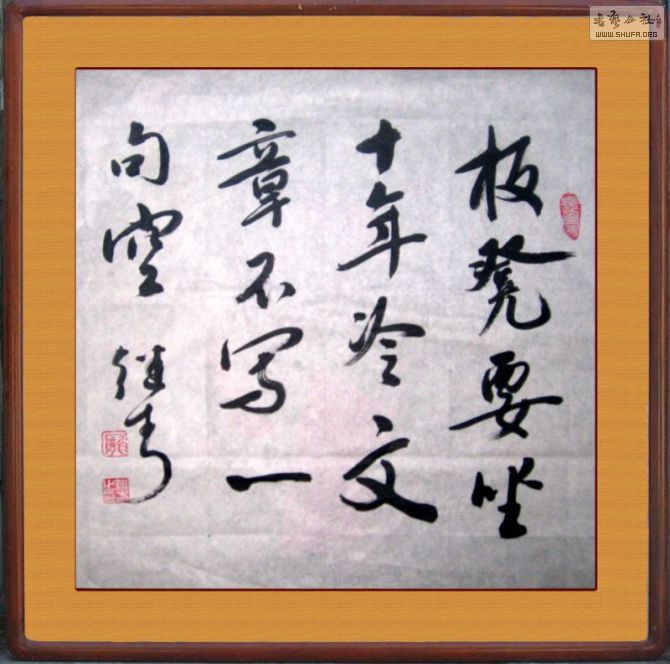 板凳要坐
十年冷文
章不写一
句空
继青
书艺公社
WWW.SHUFA.ORG